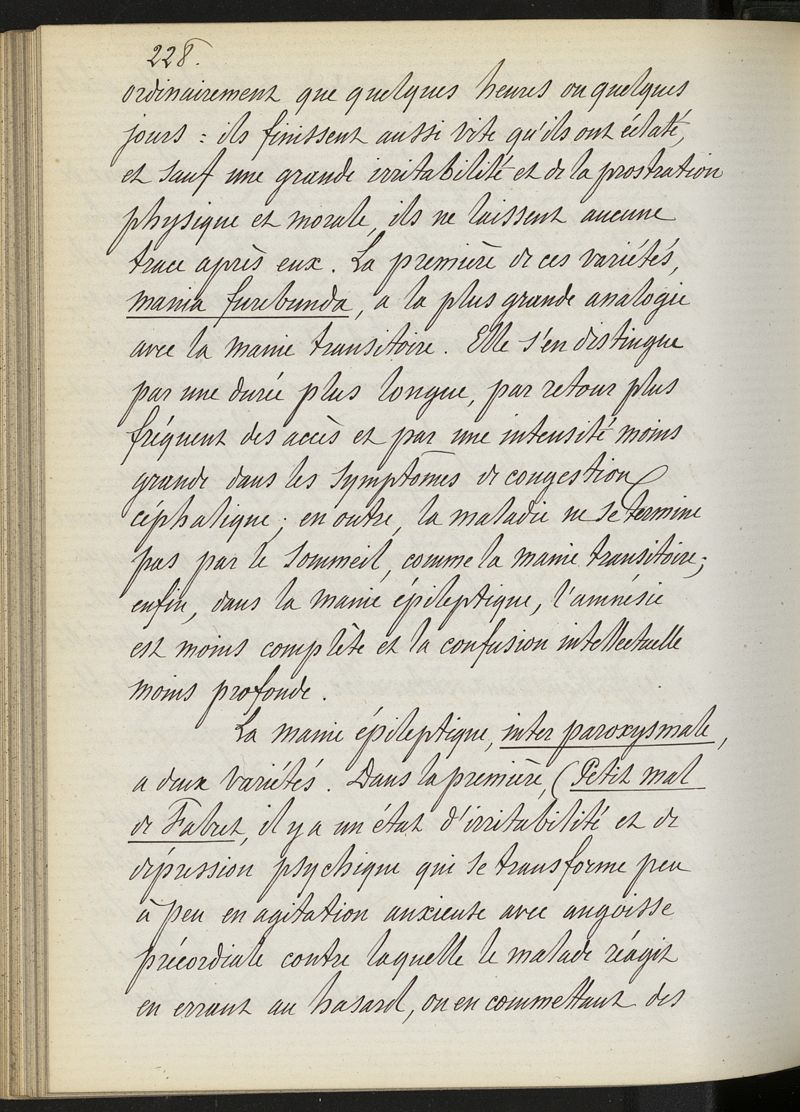 228.
ordinairement que quelques heures ou quelques
jours : ils finissent aussi vite qu'ils ont éclaté,
et sauf une grande irritabilité et de la prostration
physique et morale, ils ne laissent aucune
trace après eux. La première de ces variétés,
mania furebunda, a la plus grande analogie
avec la manie transitoire. Elle s'en distingue
par une durée plus longue, par retour plus
fréquent des accès et par une intensité moins
grande dans les symptômes de congestion
céphalique; en outre, la maladie ne se termine
pas par le sommeil, comme la manie transitoire;
enfin, dans la manie épileptique, l'amnésie
est moins complète et la confusion intellectuelle
moins profonde.
La manie épileptique, inter paroxysmale,
a deux variétés. Dans la première, (Petit mal
de Falret, il y a un état d'irritabilité et de
dépression psychique qui se transforme peu
à peu en agitation anxieuse avec angoisse
précordiale contre laquelle le malade réagit
en errant au hasard, ou en commettant des